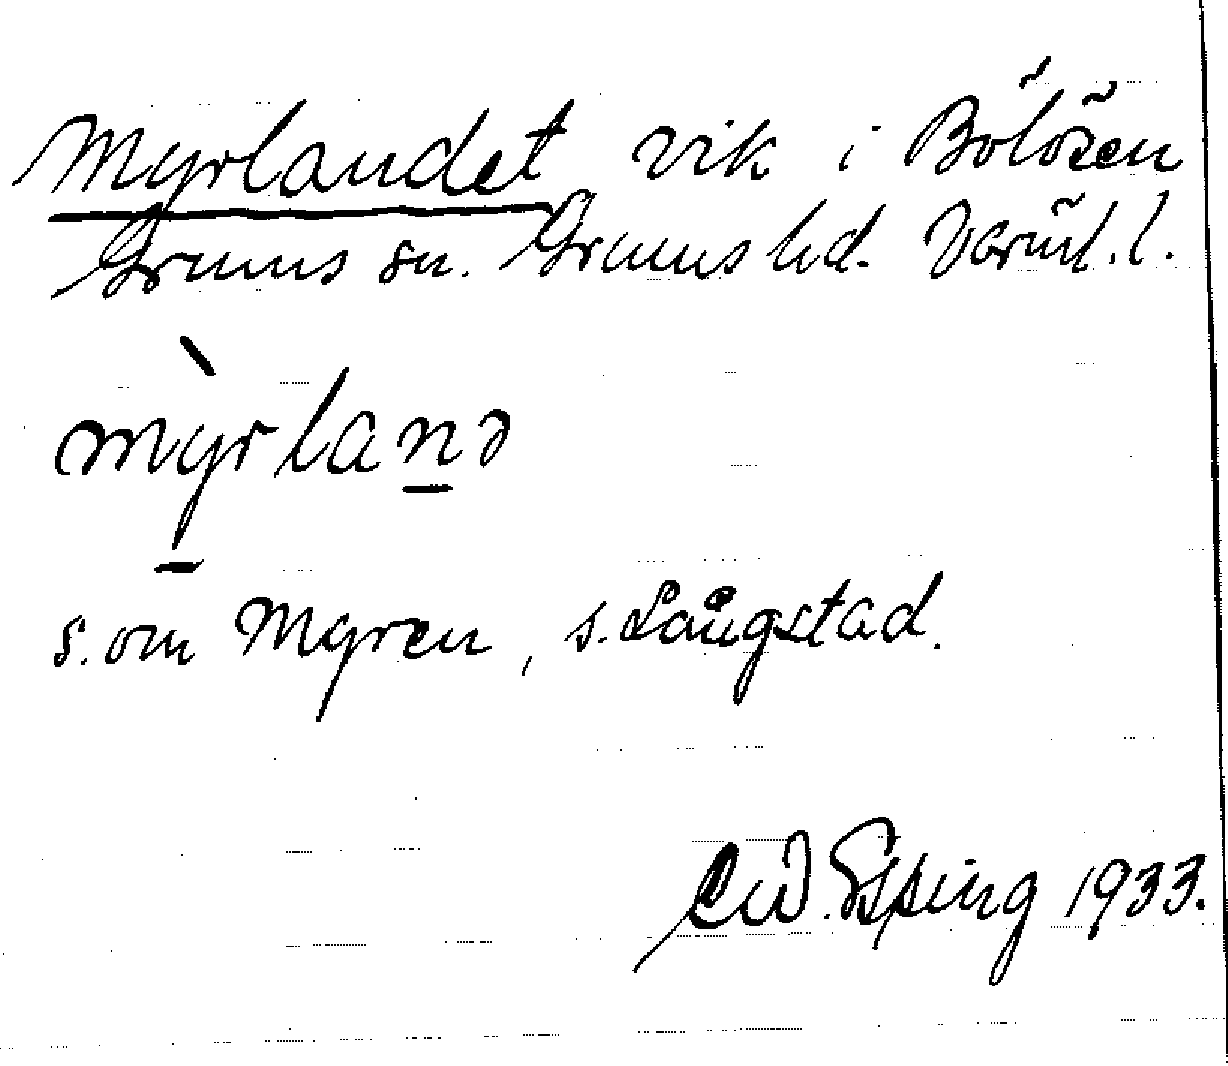 Myrlandet vik i Bölösen
Grums sn. Grums hd. Värml. l.
m̀yrlanə
s. om Myren, s. Långstad.
C W. Esping 1933.